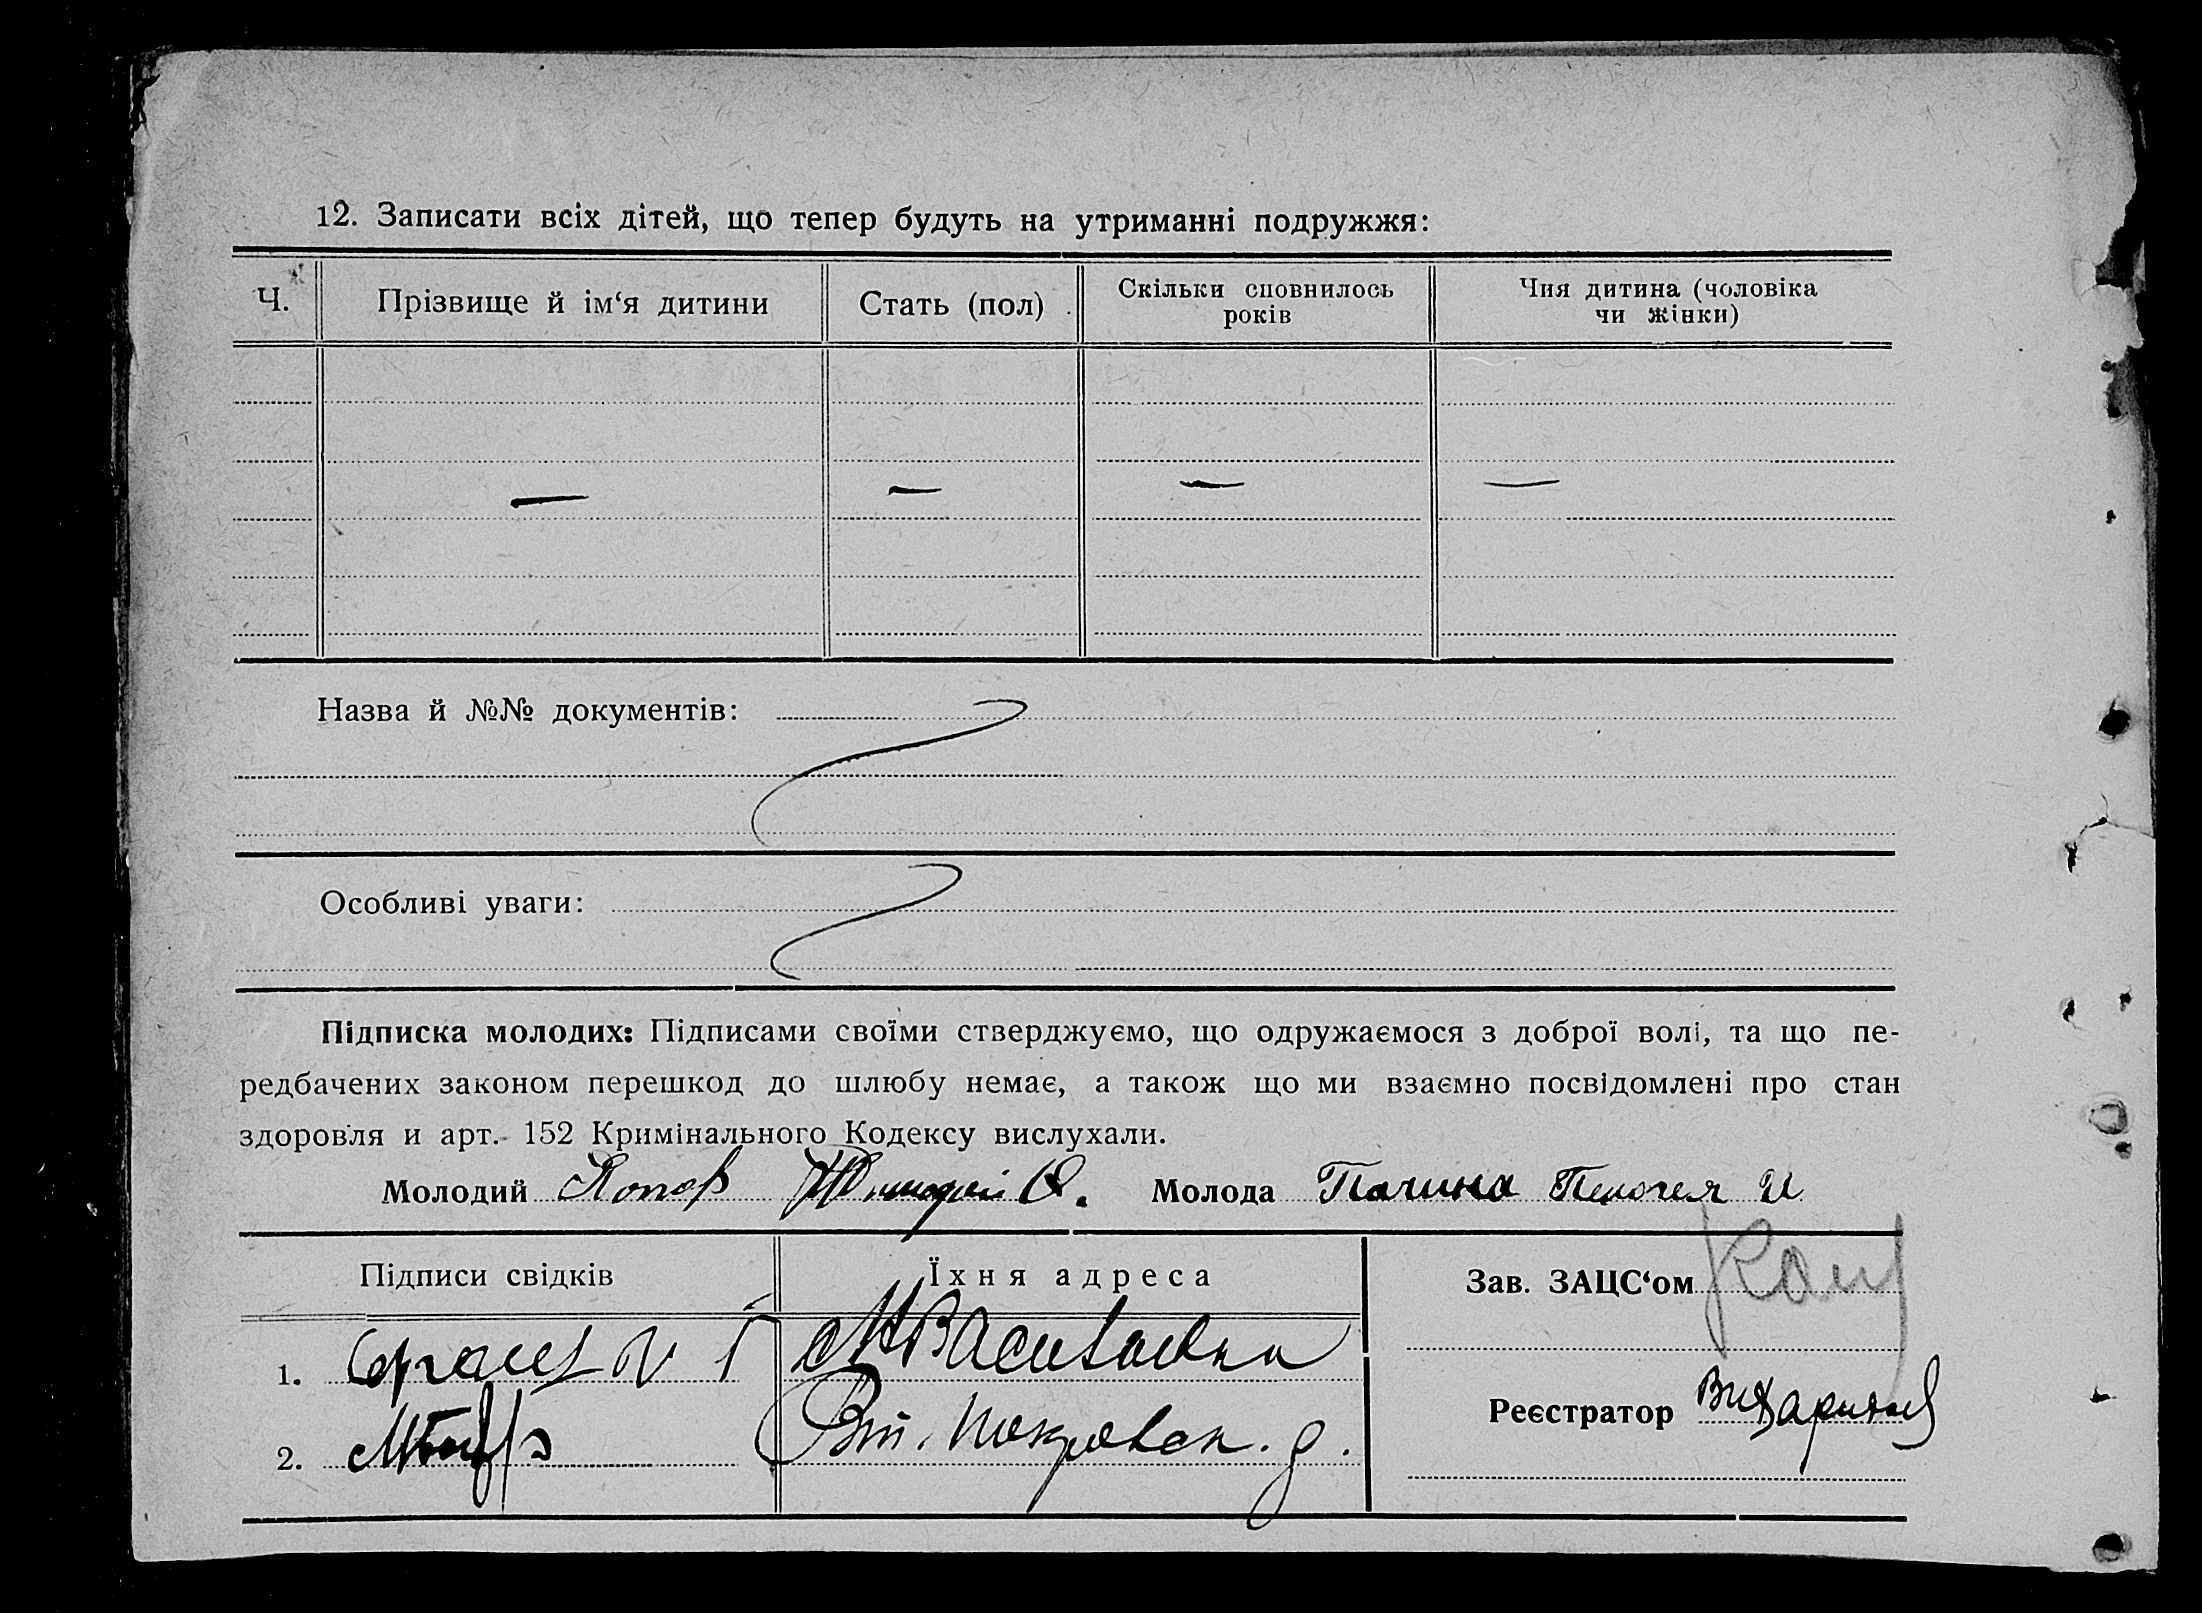 12. Записати всіх дітей, що тепер будуть на утриманні подружжя:
Ч. Прізвище й ім‘я дитини Стать (пол) Скільки сповнилось років Чия дитина (чоловіка чи жінки)
— — — —
Назва й №№ документів:
Особливі уваги:
Підписка молодих: Підписами своїми стверджуємо, що одружаємося з доброї волі, та що пе-
редбачених законом перешкод до шлюбу немає, а також що ми взаємно посвідомлені про стан
здоров'я и арт. 152 Кримінального Кодексу вислухали.
Молодий Молода
Підписи свідків Їхня адреса Зав. ЗАЦС‘ом
1.
Реєстратор
2.